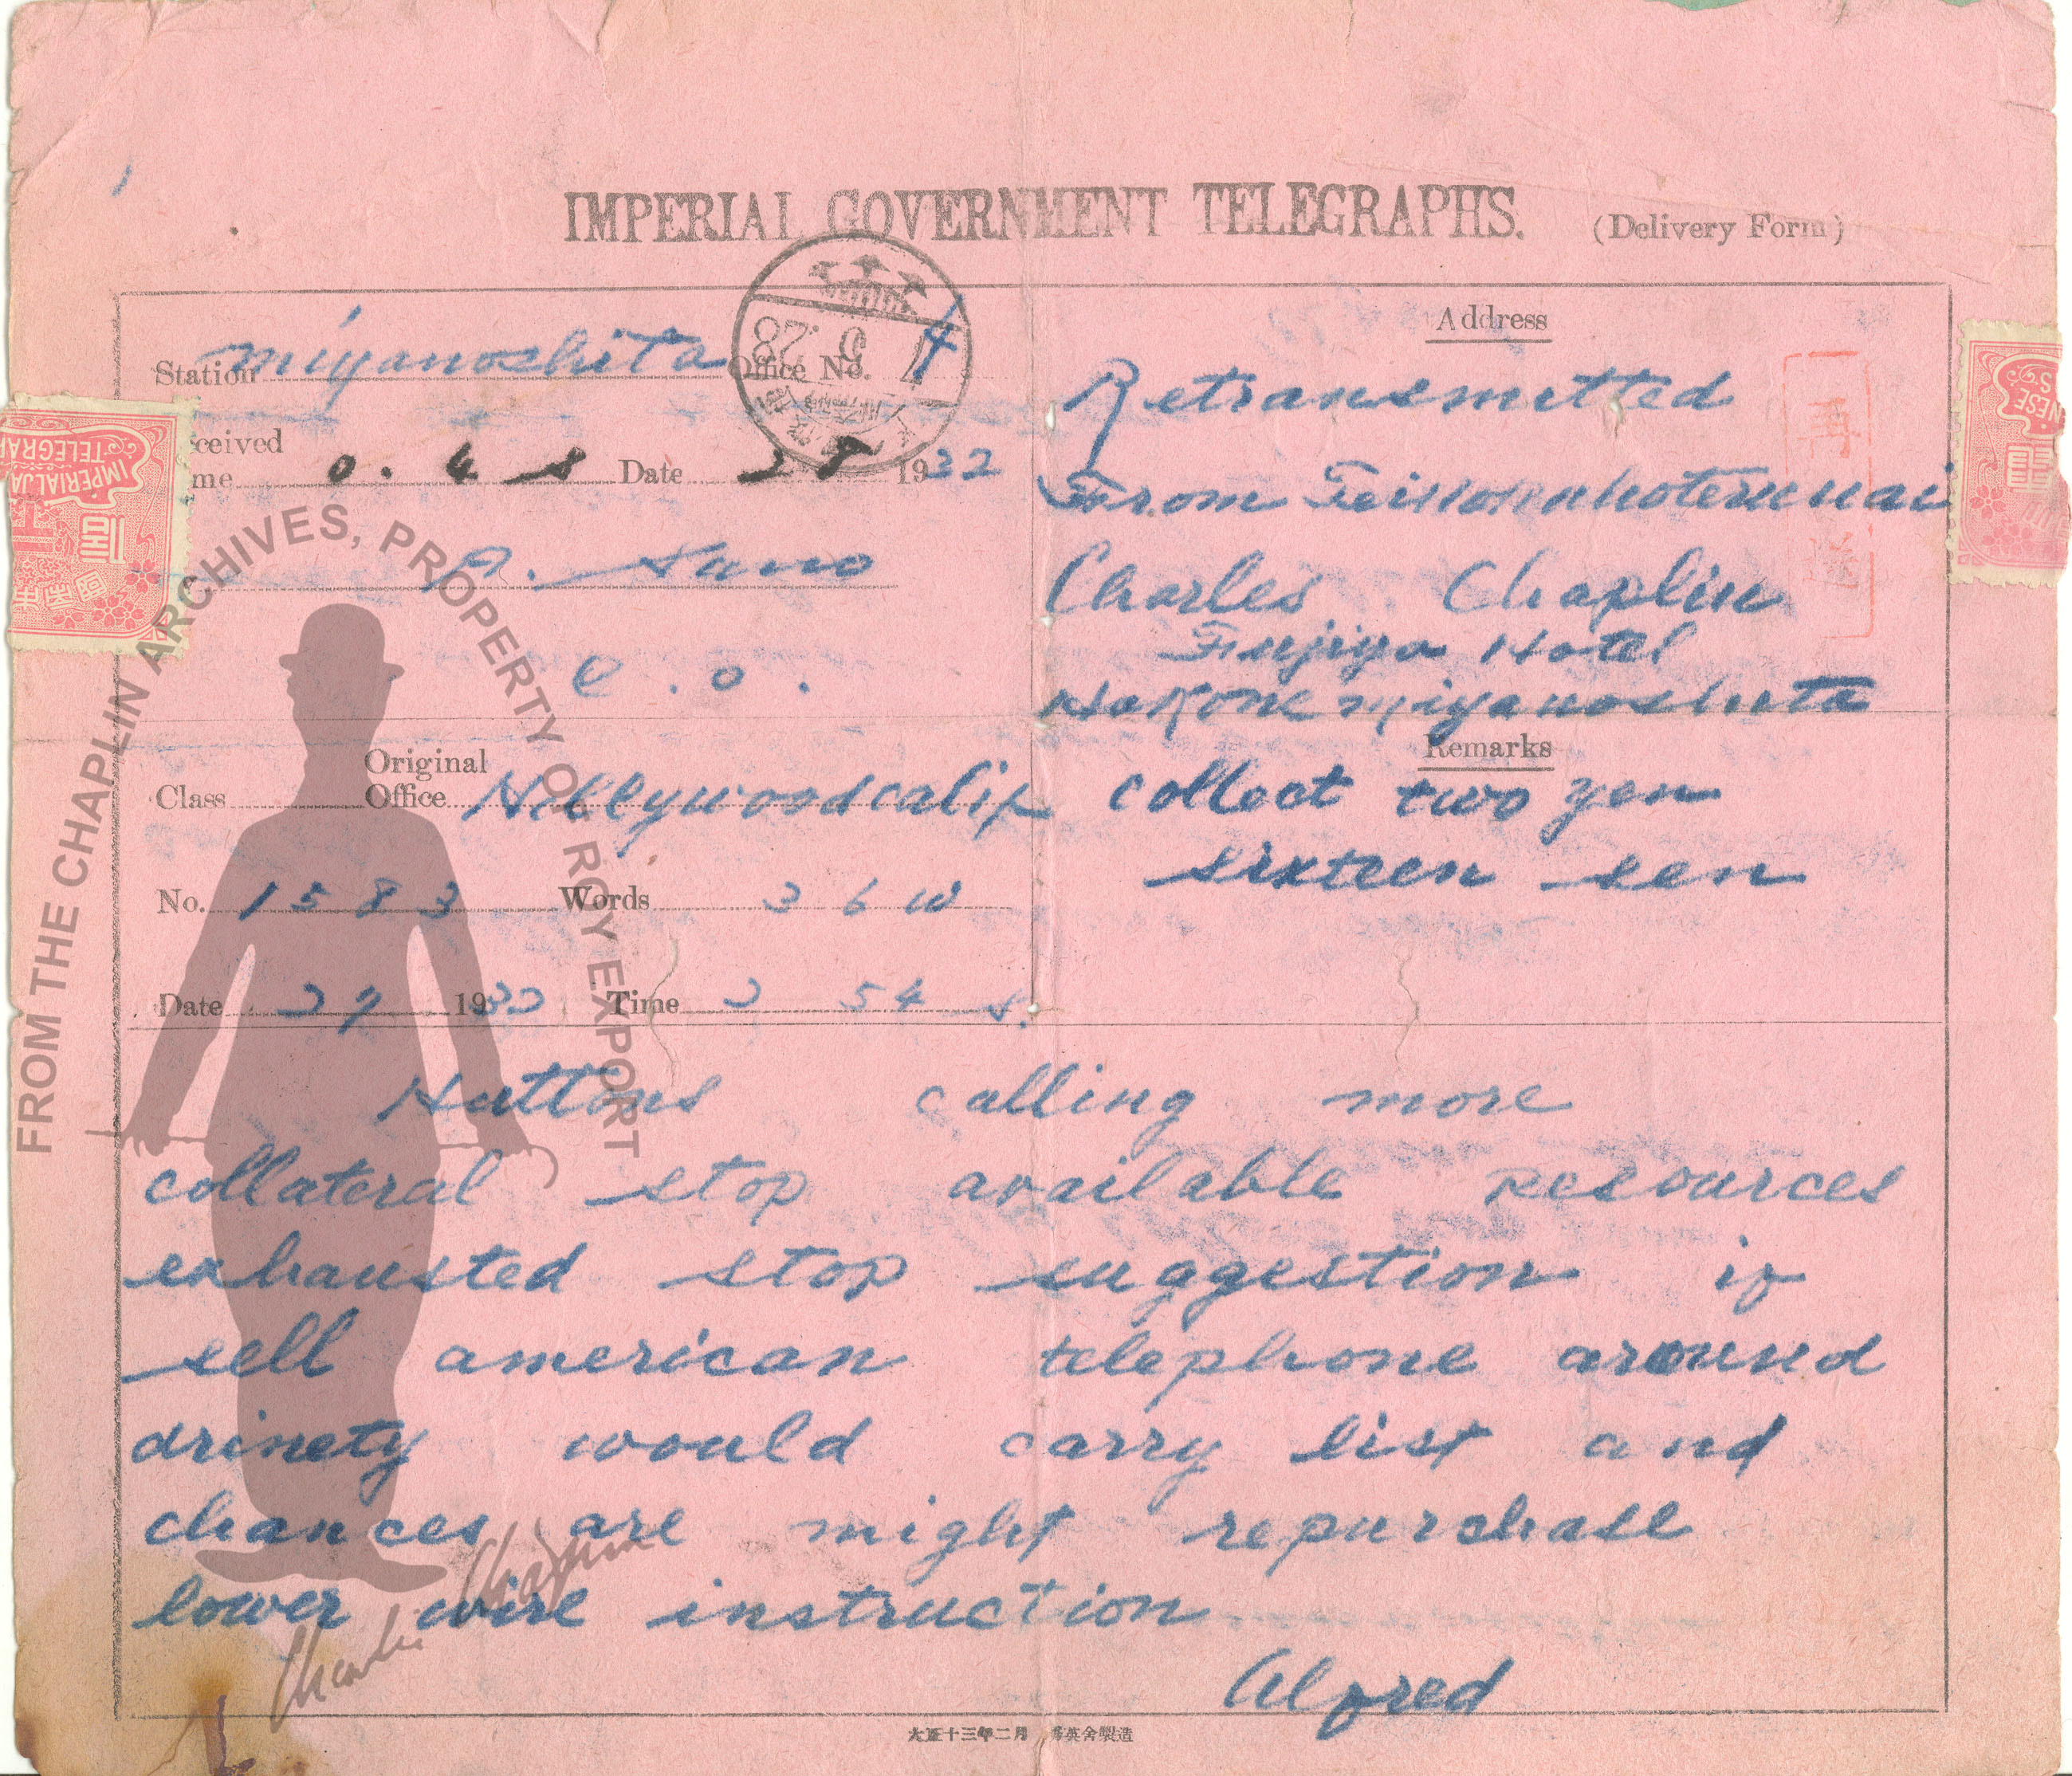 IMPERIAL GOVERNMENT TELEGRAPHS. (Delivery Form)
Station miyanoshita Office No. 4
ceived
me 0. 4 8 Date 28 1932
C. O.
Class Original Office Hollywoodcalif
No. 1583 Words 36 W
Date 27 1932 Time 2 54 S.
Address
Retransmitted
From
Charles Chaplin
Fujiya Hotel
Hakone miyanoshita
再
送
Remarks
collect two yen
sixteen sen
Huttons calling more
collateral stop available resources
exhausted stop suggestion if
sell american telephone around
drinety would carry list and
chances are might repurchase
lower wire instruction
Alfred
大正十三年二月 英舍製造
IMPERIAL JA
TELEGRA
NESE
FROM THE CHAPLIN ARCHIVES, PROPERTY OF ROY EXPORT
Charlie Chaplin